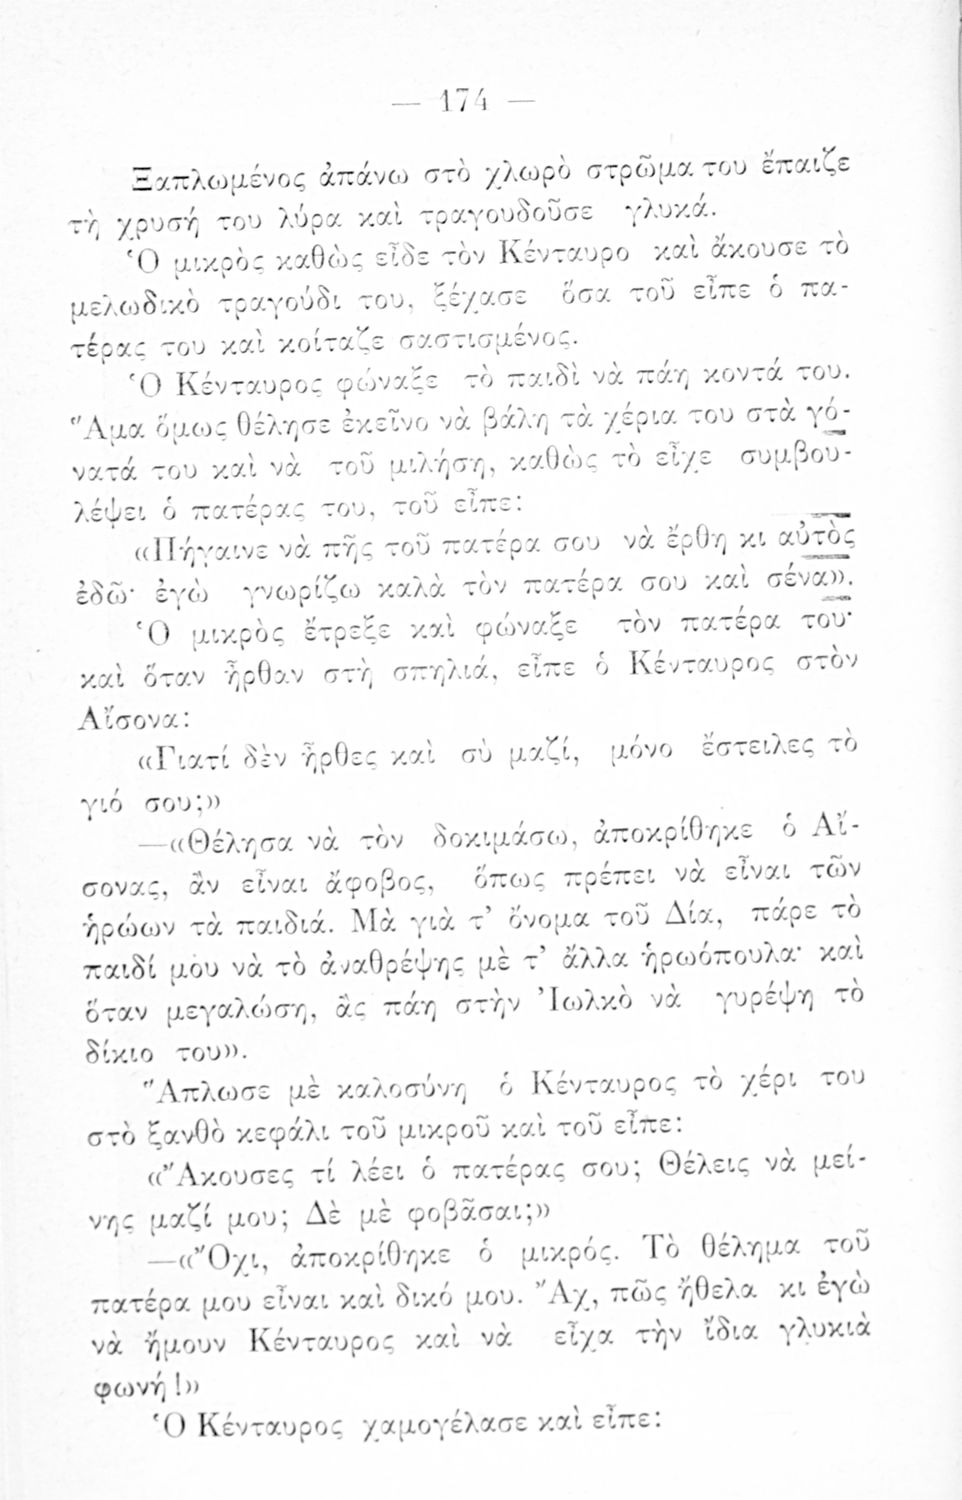 — 174 —
Ξαπλωμένος ἀπάνω στὸ χλωρὸ στρῶμα του ἔπαιζε
τὴ χρυσή του λύρα καὶ τραγουδοῦσε γλυκά.
Ὁ μικρὸς καθὼς εἶδε τὸν Κένταυρο καὶ ἄκουσε τὸ
μελωδικὸ τραγούδι του, ξέχασε ὅσα τοῦ εἶπε ὁ πα-
τέρας του καὶ κοίταζε σαστισμένος.
Ὁ Κένταυρος φώναξε τὸ παιδὶ νὰ πάη κοντά του.
Ἅμα ὅμως θέλησε ἐκεῖνο νὰ βάλη τὰ χέρια του στὰ γό-
νατά του καὶ νὰ τοῦ μιλήση, καθὼς τὸ εἶχε συμβου-
λέψει ὁ πατέρας του, τοῦ εἶπε:
«Πήγαινε νὰ πῆς τοῦ πατέρα σου νὰ ἔρθη κι αὐτὸς
ἐδῶ· ἐγὼ γνωρίζω καλὰ τὸν πατέρα σου καὶ σένα».
Ὁ μικρὸς ἔτρεξε καὶ φώναξε τὸν πατέρα του·
καὶ ὅταν ἦρθαν στὴ σπηλιά, εἶπε ὁ Κένταυρος στὸν
Αἴσονα:
«Γιατί δὲν ἦρθες καὶ σὺ μαζί, μόνο ἔστειλες τὸ
γιό σου;»
—«Θέλησα νὰ τὸν δοκιμάσω, ἀποκρίθηκε ὁ Αἴ-
σονας, ἂν εἶναι ἄφοβος, ὅπως πρέπει νὰ εἶναι τῶν
ἡρώων τὰ παιδιά. Μὰ γιὰ τ’ ὄνομα τοῦ Δία, πάρε τὸ
παιδί μου νὰ τὸ ἀναθρέψης μὲ τ’ ἄλλα ἡρωόπουλα· καὶ
ὅταν μεγαλώση, ἂς πάη στὴν Ἰωλκὸ νὰ γυρέψη τὸ
δίκιο του».
Ἅπλωσε μὲ καλοσύνη ὁ Κένταυρος τὸ χέρι του
στὸ ξανθὸ κεφάλι τοῦ μικροῦ καὶ τοῦ εἶπε:
«Ἄκουσες τί λέει ὁ πατέρας σου; Θέλεις νὰ μεί-
νης μαζί μου; Δὲ μὲ φοβᾶσαι;»
—«Ὄχι, ἀποκρίθηκε ὁ μικρός. Τὸ θέλημα τοῦ
πατέρα μου εἶναι καὶ δικό μου. Ἄχ, πῶς ἤθελα κι ἐγὼ
νὰ ἤμουν Κένταυρος καὶ νὰ εἶχα τὴν ἴδια γλυκιὰ
φωνή!»
Ὁ Κένταυρος χαμογέλασε καὶ εἶπε: